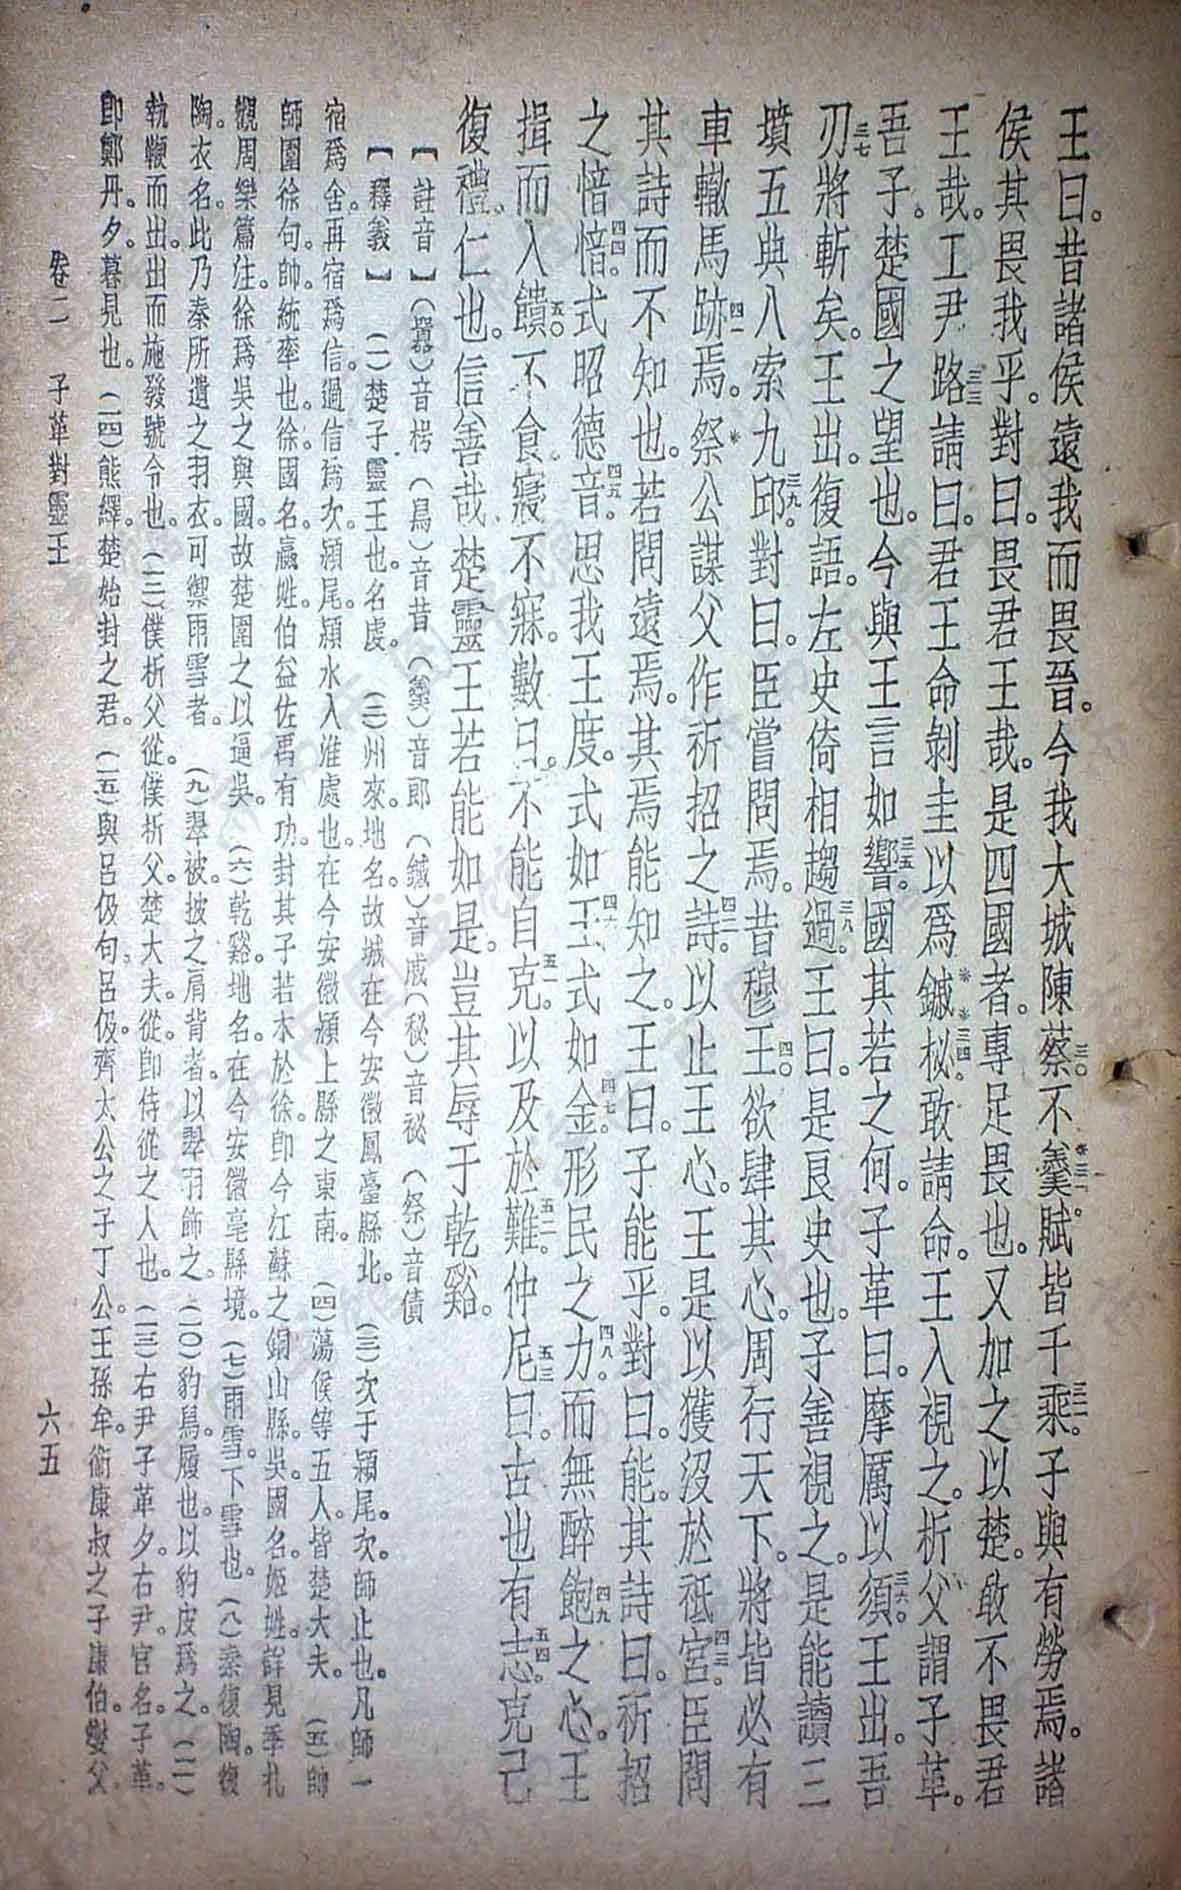 王曰。昔諸侯遠我而畏晉。今我大城陳蔡三〇。不羹*三一。賦皆千乘三二。子與有勞焉。諸
侯其畏我乎。對曰。畏君王哉。是四國者。專足畏也。又加之以楚。敢不畏君
王哉。工尹路三三請曰。君王命剝圭以爲鏚*柲*三四。敢請命。王入視之。析父謂子革。
吾子。楚國之望也。今與王言如響三五。國其若之何。子革曰。摩厲以須三六。王出。吾
刃三七將斬矣。王出。復語。左史倚相趨過三八。王曰。是良史也。子善視之。是能讀三
墳五典八索九邱三九。對曰。臣嘗問焉。昔穆王四〇。欲肆其心。周行天下。將皆必有
車轍馬跡四一焉。祭*公謀父作祈招之詩四二。以止王心。王是以獲沒於祗宮四三。臣問
其詩而不知也。若問遠焉。其焉能知之。王曰。子能乎。對曰。能。其詩曰。祈招
之愔愔四四。式昭德音四五。思我王度。式如玉四六。式如金四七。形民之力四八。而無醉飽四九之心。王
揖而入。饋五〇不食。寢不寐。數日。不能自克五一。以及於難五二。仲尼五三曰。古也有志五四。克己
復禮。仁也。信善哉。楚靈王若能如是。豈其辱于乾谿。
【註音】（嚚）音枵（舄）音昔（羹）音郎（鏚）音戚（秘）音祕（祭）音債
【釋義】（一）楚子靈王也。名虔。（二）州來。地名。故城在今安徽鳳臺縣北。（三）次于潁尾。次。師止也。凡師一
宿爲舍。再宿爲信。過信爲次。潁尾。潁水入淮處也。在今安徽潁上縣之東南。（四）蕩侯等五人。皆楚大夫。（五）帥
師圍徐句。帥。統率也。徐。國名。嬴姓。伯益佐禹有功。封其子若木於徐。卽今江蘇之銅山縣。吳。國名。姬姓。詳見季札
觀周樂篇注。徐爲吳之與國。故楚圍之以逼吳。（六）乾谿。地名。在今安徽亳縣境。（七）雨雪。下雪也。（八）秦復陶。復
陶。衣名。此乃秦所遺之羽衣。可禦雨雪者。（九）翠被。披之肩背者。以翠羽飾之。（一〇）豹舄。履也。以豹皮爲之。（一一）
執鞭而出。出而施發號令也。（一二）僕析父從。僕析父。楚大夫。從。卽侍從之人也。（一三）右尹子革夕。右尹。官名。子革。
卽鄭丹。夕。暮見也。（一四）熊繹。楚始封之君。（一五）與呂伋句。呂伋。齊太公之子丁公。王孫牟。衞康叔之子康伯。燮父
卷二　子革對靈王　六五